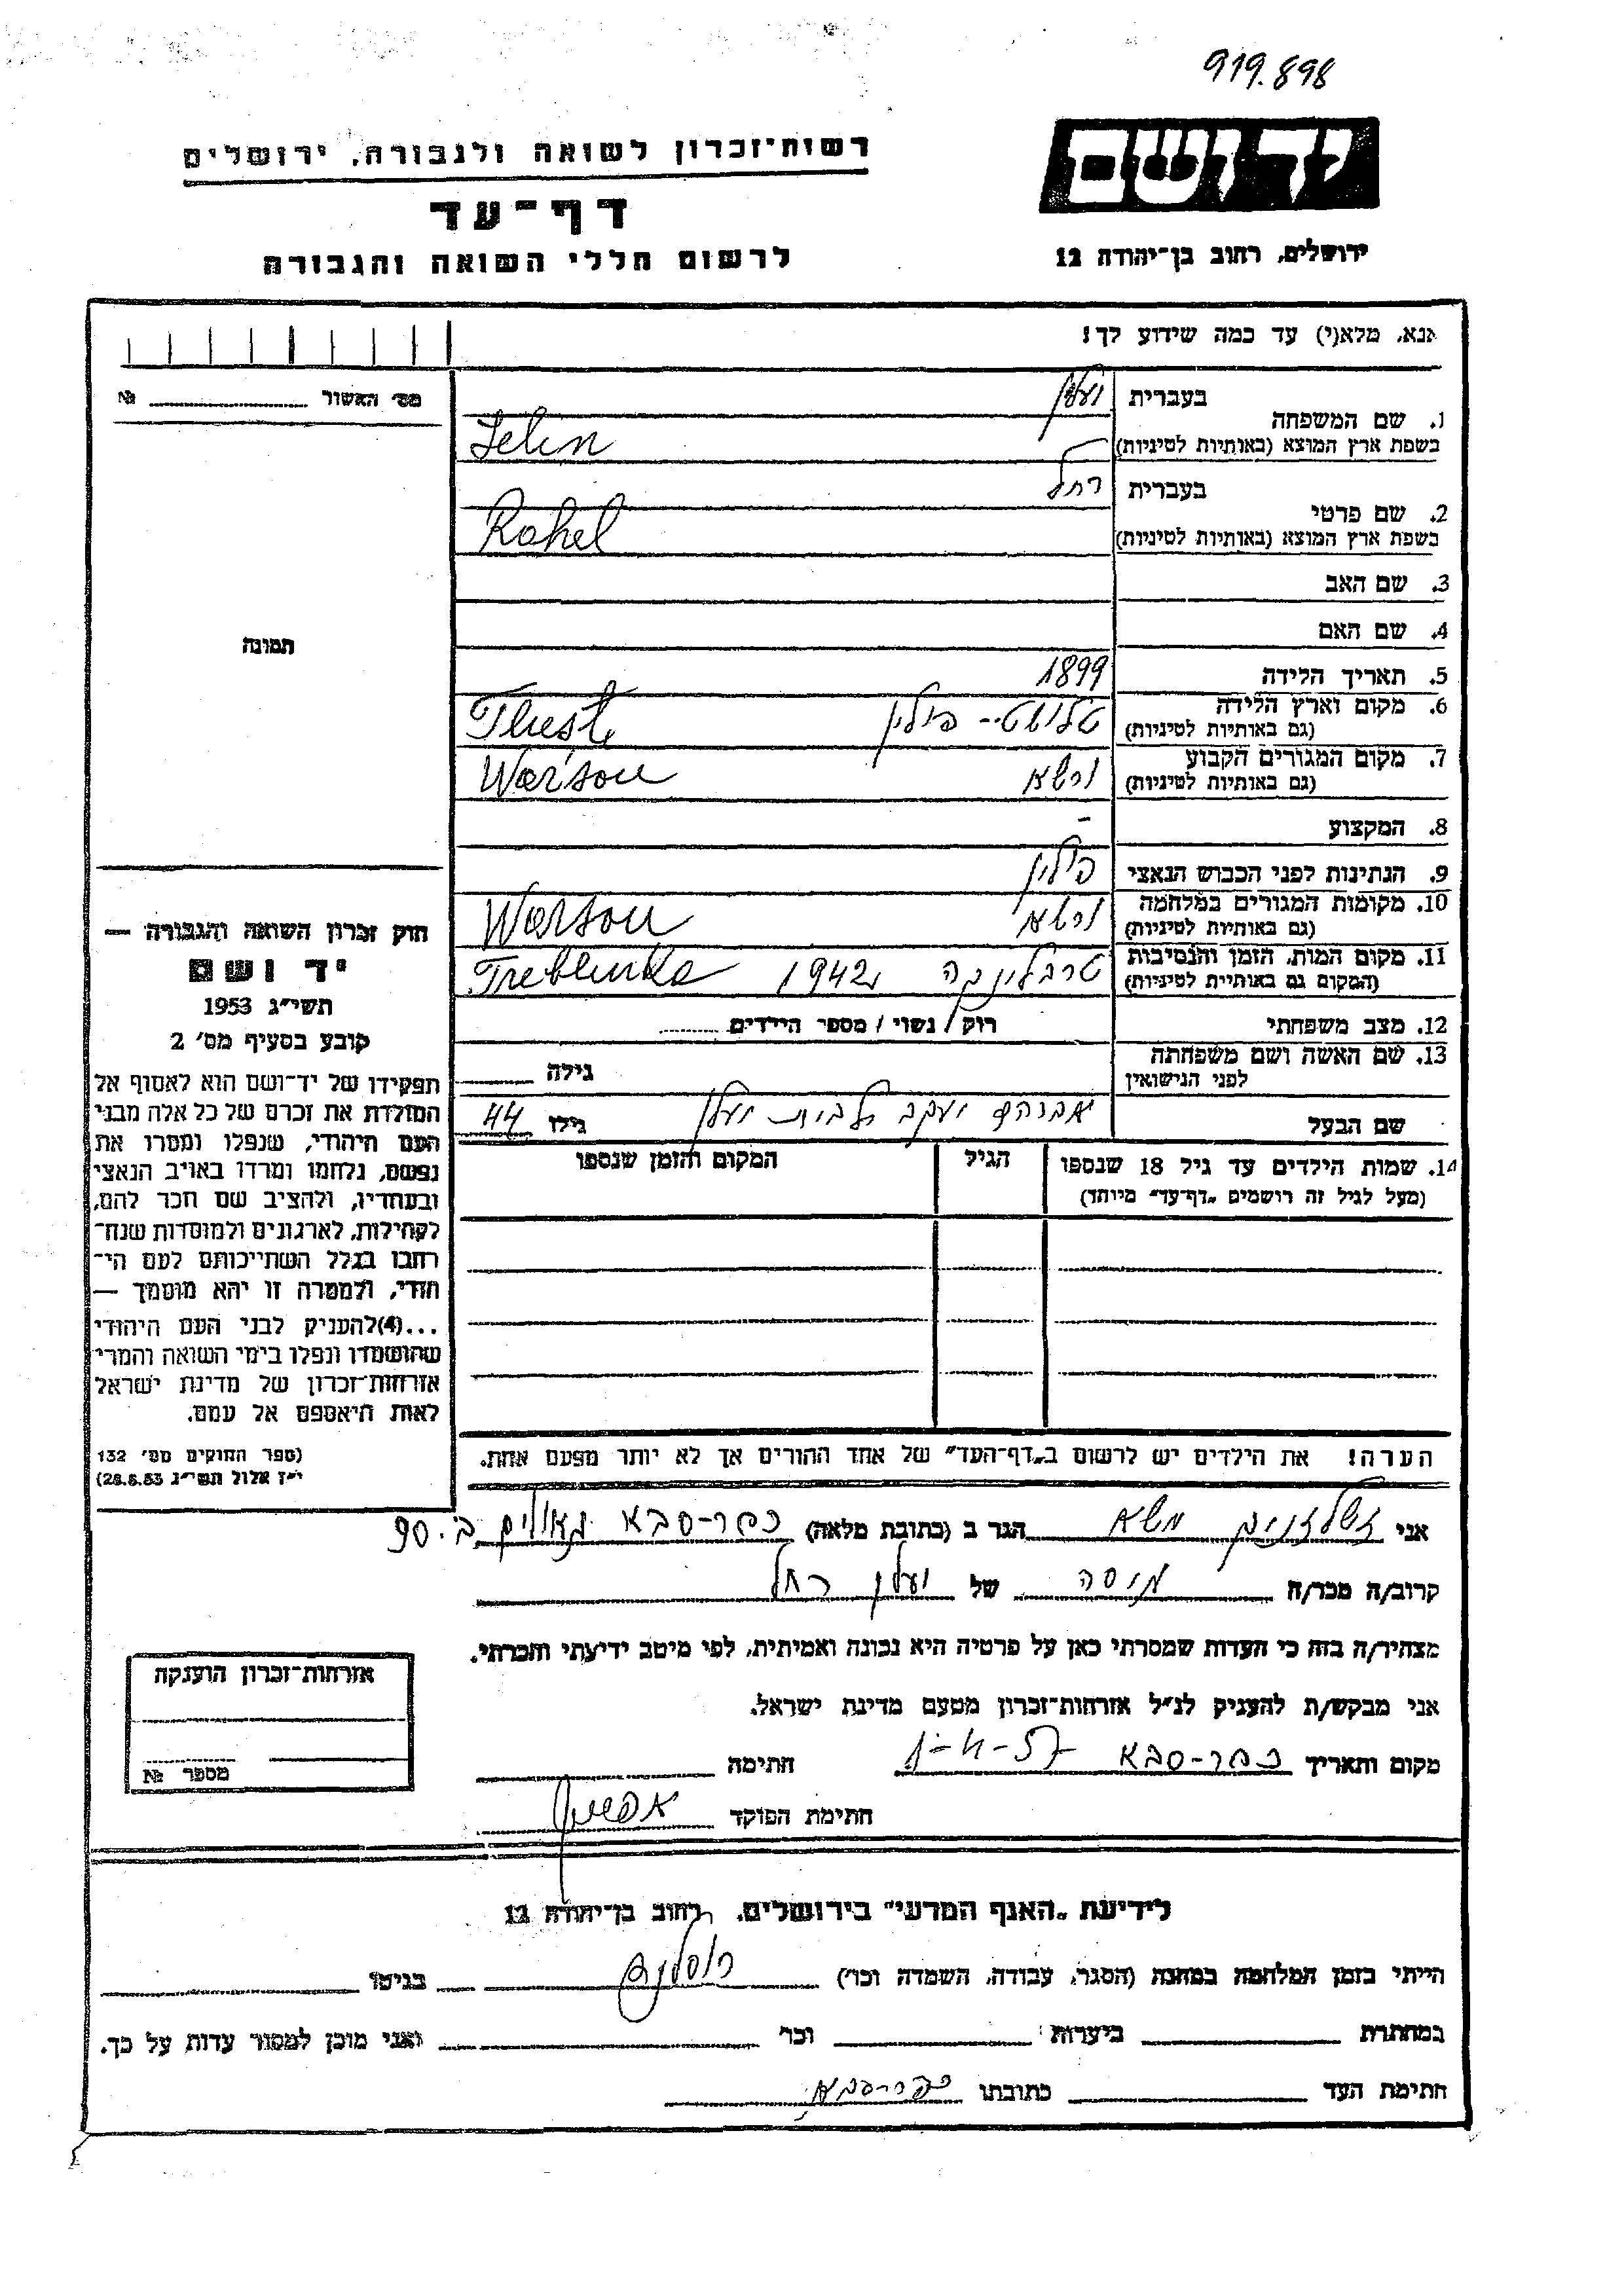 919.898
יד ושם
רשות־זכרון לשואה ולגבורה, ירושלים
דף־עד
לרשום חללי השואה והגבורה
ירושלים, רחוב בן־יהודה 12
אנא, מלא(י) עד כמה שידוע לך!
מס׳ האשור № 
1. שם המשפחה
בעברית
בשפת ארץ המוצא (באותיות לטיניות) Jelin
2. שם פרטי
בעברית רחל
בשפת ארץ המוצא (באותיות לטיניות) Rahel
3. שם האב
4. שם האם
5. תאריך הלידה 1899
6. מקום וארץ הלידה
(גם באותיות לטיניות) טלושט - פולין Tlusste
7. מקום המגורים הקבוע
(גם באותיות לטיניות) ורשא Warsou
8. המקצוע -
9. הנתינות לפני הכבוש הנאצי פולין
10. מקומות המגורים במלחמה
(גם באותיות לטיניות) ורשא Warsou
11. מקום המות, הזמן והנסיבות
(המקום גם באותיות לטיניות) טרבלינקה 1942 Treblinka
12. מצב משפחתי רוק / נשוי / מספר הילדים
13. שם האשה ושם משפחתה
לפני הנישואין גילה
שם הבעל אברהם יעקב גילו 44
14. שמות הילדים עד גיל 18 שנספו
(מעל לגיל זה רושמים „דף־עד" מיוחד)
הגיל
המקום והזמן שנספו
תמונה
חוק זכרון השואה והגבורה —
יד ושם
תשי״ג 1953
קובע בסעיף מס׳ 2
תפקידו של יד־ושם הוא לאסוף אל
המולדת את זכרם של כל אלה מבני
העם היהודי, שנפלו ומסרו את
נפשם, נלחמו ומרדו באויב הנאצי
ובעוזריו, ולהציב שם וזכר להם,
לקהילות, לארגונים ולמוסדות שנח־
רבו בגלל השתייכותם לעם הי־
הודי, ולמטרה זו יהא מוסמך —
...(4)להעניק לבני העם היהודי
שהושמדו ונפלו בימי השואה והמרי
אזרחות־זכרון של מדינת ישראל
לאות היאספם אל עמם.
(ספר החוקים מס׳ 132
י״ז אלול תשי״ג 28.8.53)
הערה! את הילדים יש לרשום ב„דף־העד" של אחד ההורים אך לא יותר מפעם אחת.
אני הגר ב (כתובת מלאה) כפר-סבא גאולים ב׳ 90
קרוב/ה מכר/ה של רחל
מצהיר/ה בזה כי העדות שמסרתי כאן על פרטיה היא נכונה ואמיתית, לפי מיטב ידיעתי והכרתי.
אני מבקש/ת להעניק לנ״ל אזרחות־זכרון מטעם מדינת ישראל.
מקום ותאריך כפר-סבא חתימה
חתימת הפוקד
אזרחות־זכרון הוענקה
מספר №
לידיעת „האגף המדעי" בירושלים, רחוב בן־יהודה 12
הייתי בזמן המלחמה במחנה (הסגר, עבודה, השמדה וכו׳) בגיטו
במחתרת ביערות וכו׳ ואני מוכן למסור עדות על כך.
חתימת העד כתובתו כפר-סבא